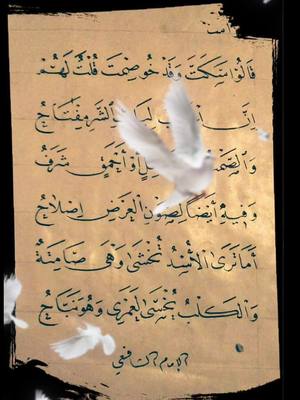 قَالُوا سَكَتَّ وَقَدْ خُوصِمْتَ قُلْتُ لَهُمْ
إِنَّ الشَّرِّ مِفْتَاحُ
أَوْ أَحْمَقٍ شَرَفٌ
وَفِيهِ أَيْضاً لِصَوْنِ الْعِرْضِ إِصْلَاحُ
أَمَا تَرَى الْأُسْدَ تُخْشَى وَهْيَ صَامِتَةٌ
وَالْكَلْبُ يُخْشَى لَعَمْرِي وَهْوَ نَبَّاحُ
الإمام الشافعي